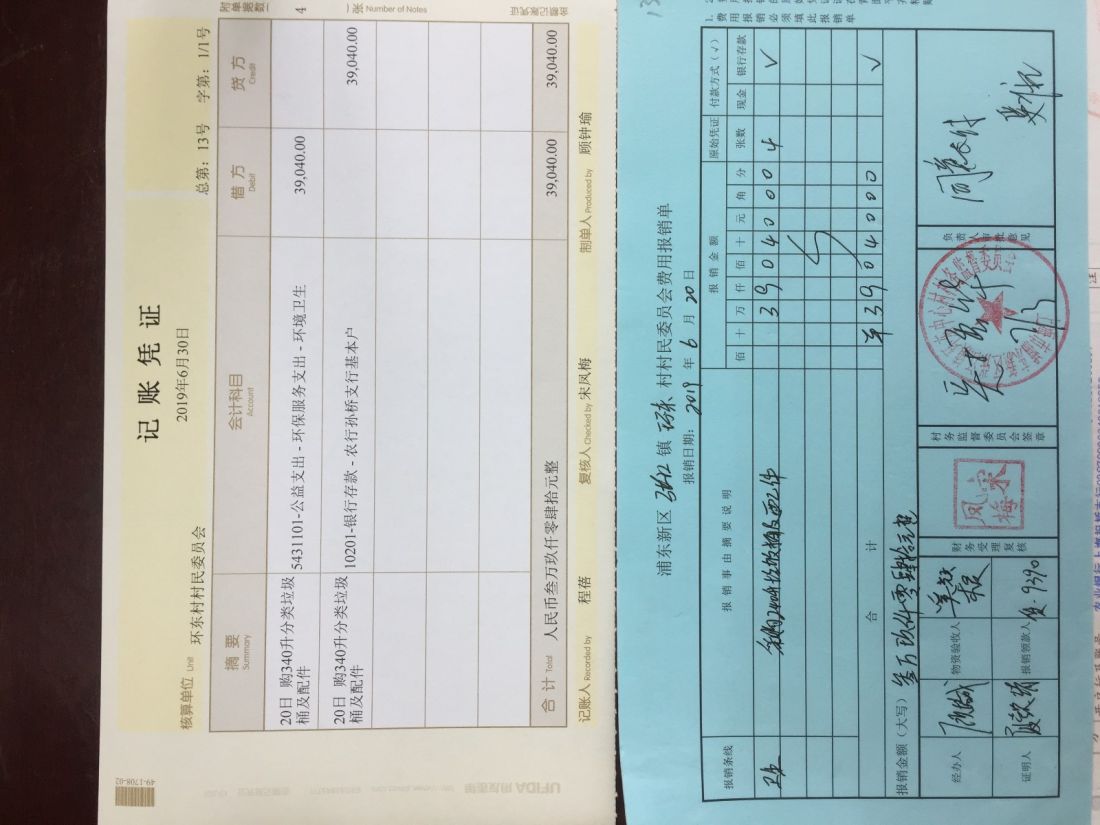 记账凭证
2019年6月30日
附单据数 4 张 Number of Notes
金额记账凭证
核算单位 Unit 环东村村民委员会
总第：13号 字第：1/1号
摘要 Summary
会计科目 Account
借方 Debit
贷方 Credit
20日 购340升分类垃圾桶及配件
5431101-公益支出 - 环保服务支出 - 环境卫生
39,040.00
20日 购340升分类垃圾桶及配件
10201-银行存款 - 农行孙桥支行基本户
39,040.00
合计 Total 人民币叁万玖仟零肆拾元整
39,040.00
39,040.00
记账人 Recorded by 程蓓
复核人 Checked by 宋凤梅
制单人 Produced by 顾钟瑜
49-1708-02
UFIDA 用友表单
1. 费用报销必须填此报销单
浦东新区 张江 镇 环东 村村民委员会费用报销单
报销日期：2019 年 6 月 20 日
报销条线
报销事由摘要说明
报销金额
佰 十 万 仟 佰 十 元 角 分
原始凭证
张数
付款方式（√）
现金 银行存款
3 9 0 4 0 0 0
4
√
合计
¥ 3 9 0 4 0 0 0
√
报销金额（大写） 叁万玖仟零肆拾元整
经办人
证明人
物资验收人
报销领款人
财务受理复核
凤宋梅
村务监督委员会签章
负责人审批意见
同意支付